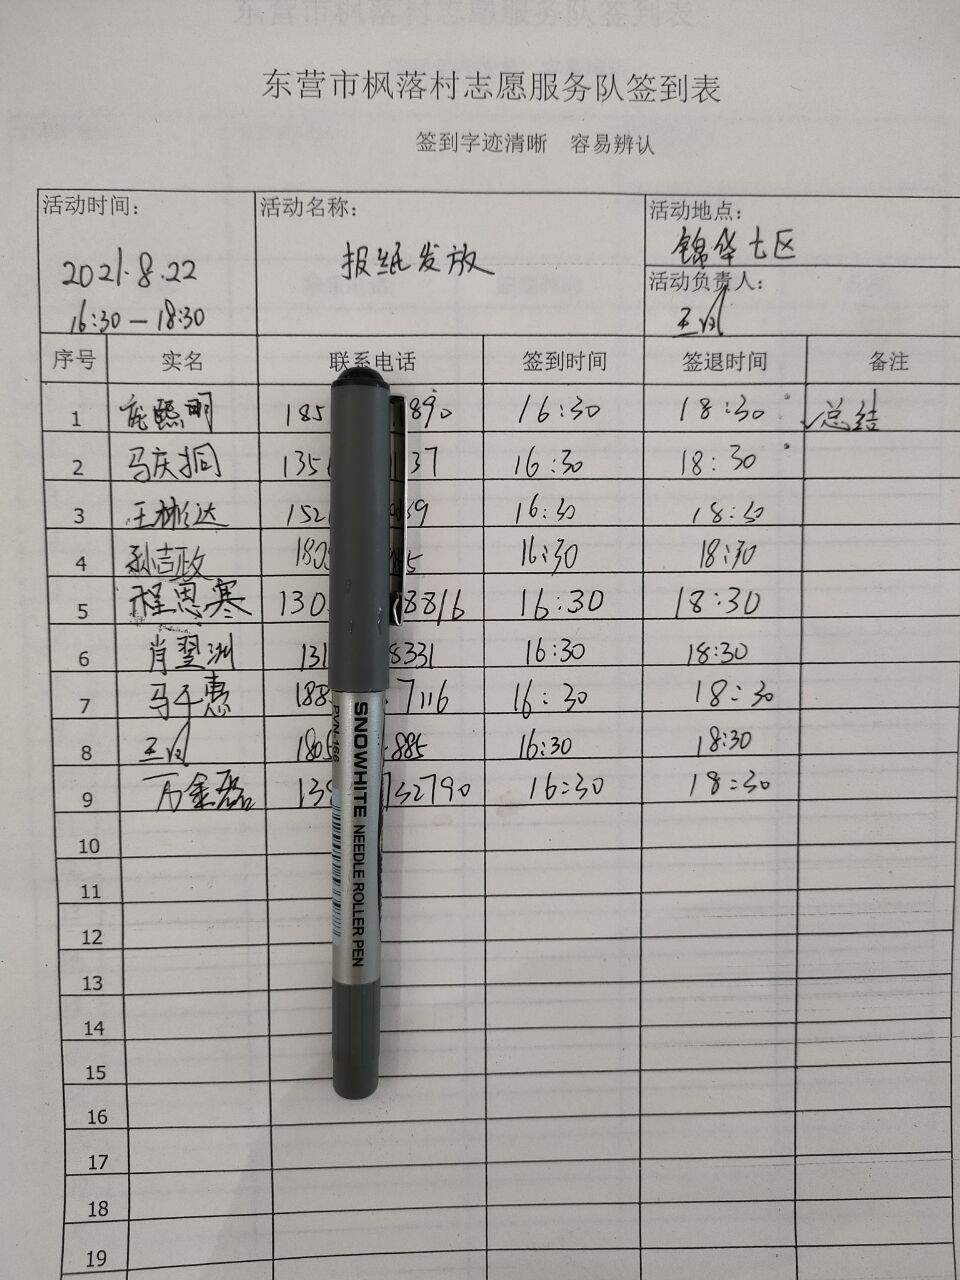 东营市枫落村志愿服务队签到表
签到字迹清晰 容易辨认
活动时间: 活动名称: 活动地点:
锦华七区
2021.8.22 报纸发放
活动负责人:
16:30 — 18:30 王凤
序号 实名 联系电话 签到时间 签退时间 备注
1 庞熙明 185 890 16:30 18:30 总结
2 马庆 135 37 16:30 18:30
3 王彬达 152 69 16:30 18:30
4 孙吉政 180 5 16:30 18:30
5 程思寒 130 8816 16:30 18:30
6 肖翌洲 131 8331 16:30 18:30
7 马千惠 188 7116 16:30 18:30
8 王凤 1805 885 16:30 18:30
9 万金磊 139 732790 16:30 18:30
10
11
12
13
14
15
16
17
18
19
SNOWHITE NEEDLE ROLLER PEN
PVN-166